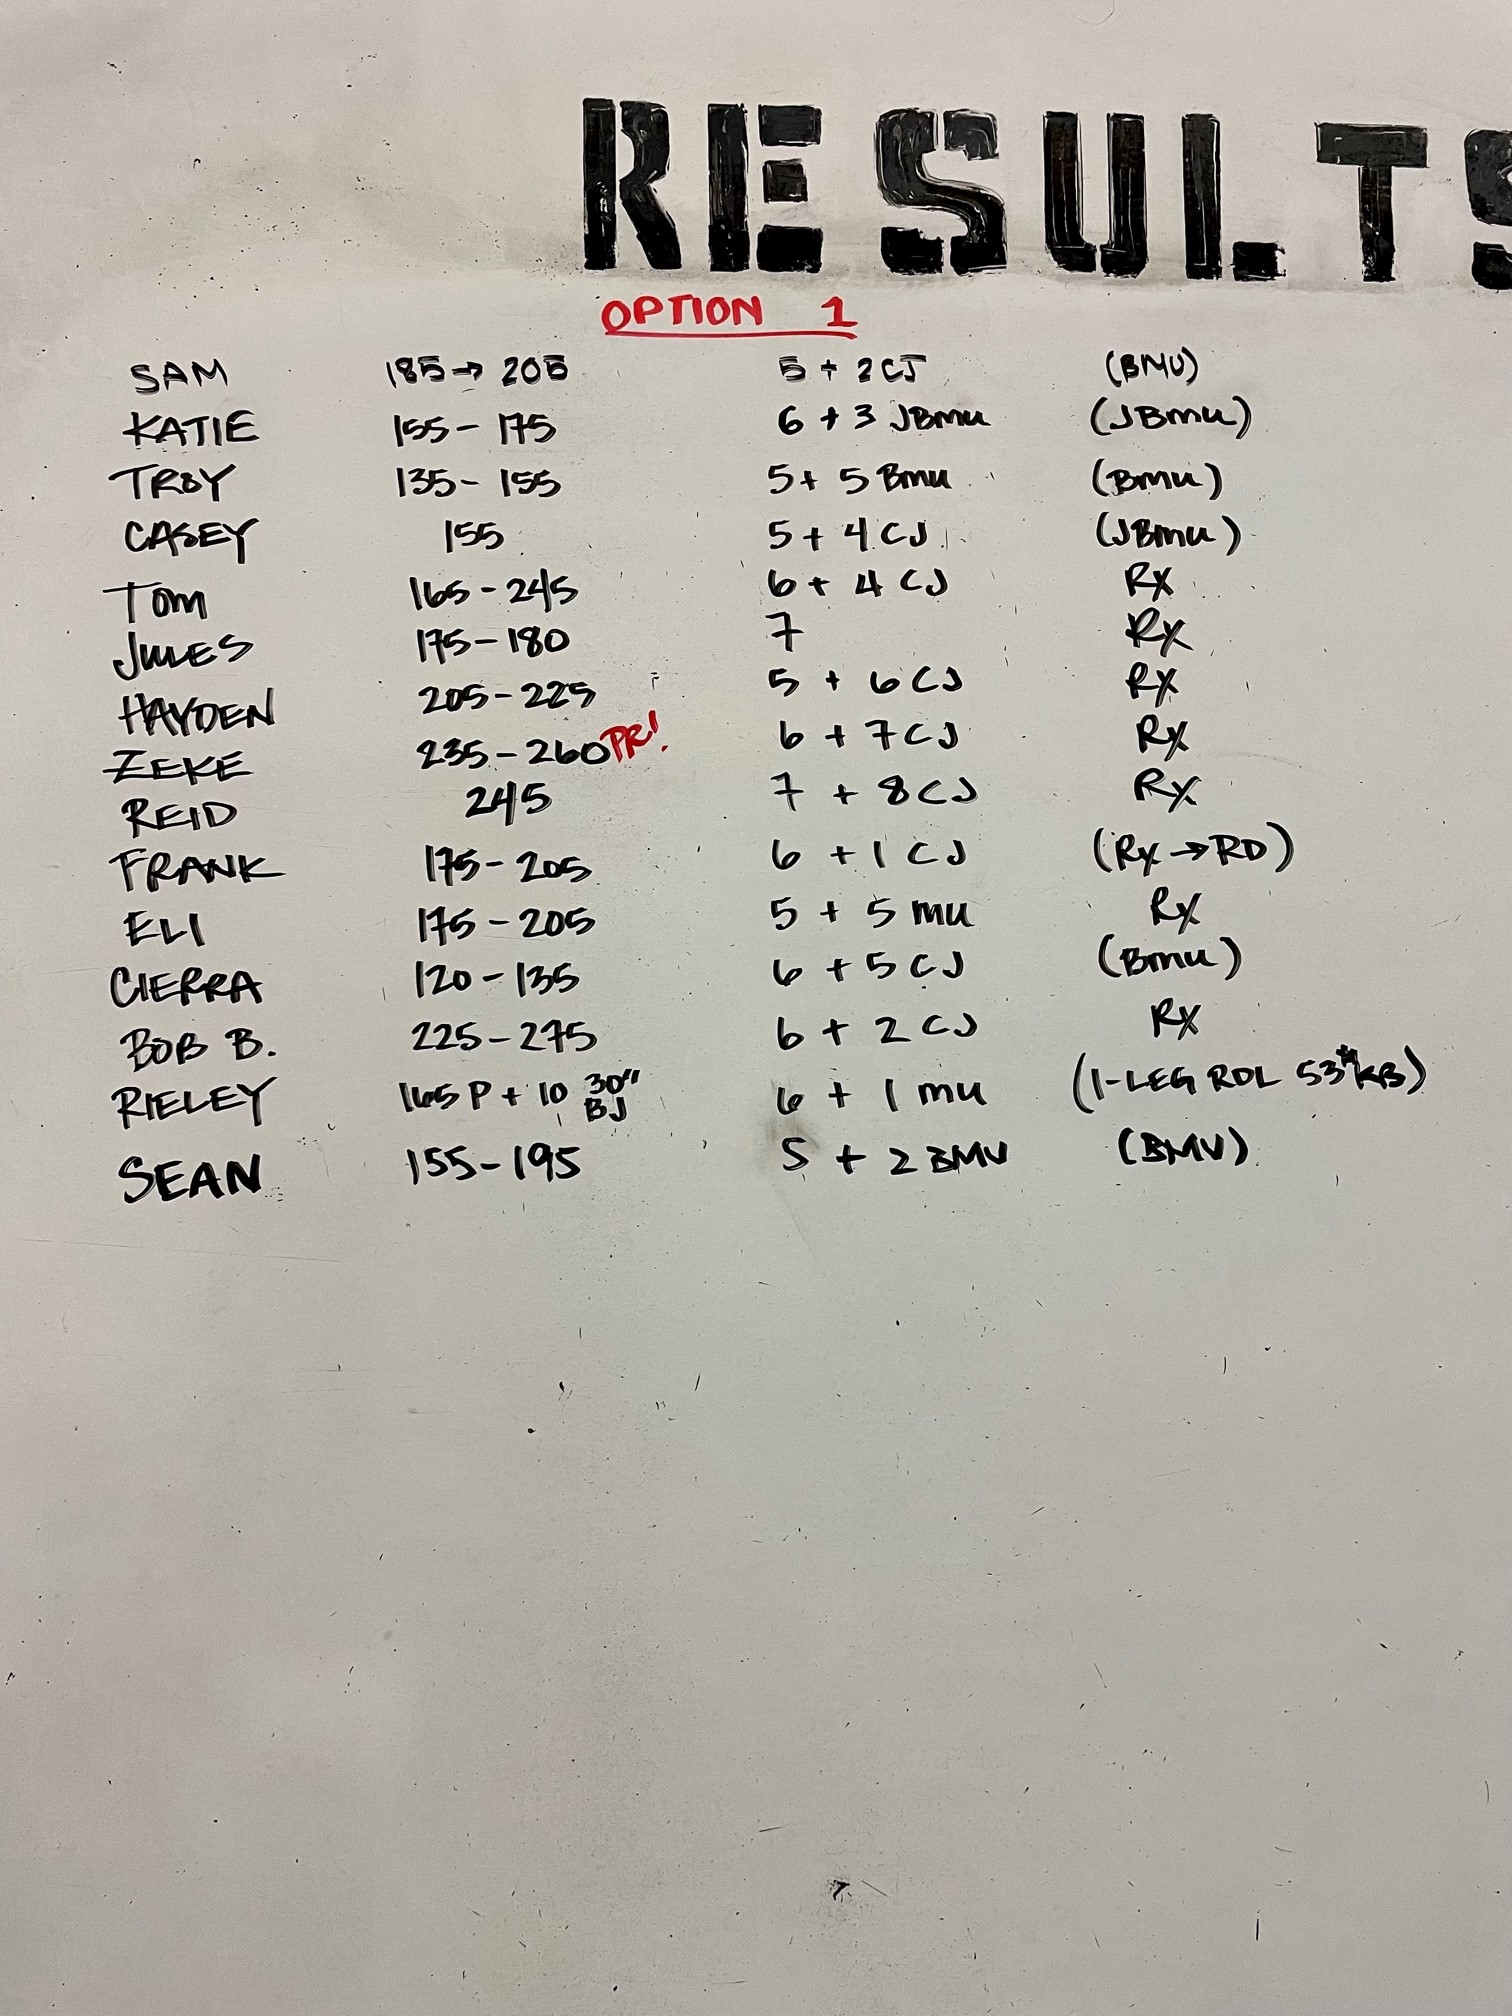 RESULTS
OPTION 1
SAM 185→205 5 + 2CJ (BMU)
KATIE 155-175 6 + 3 JBmu (JBmu)
TROY 135-155 5+ 5 Bmu (Bmu)
CASEY 155 5+ 4 CJ (JBmu)
Tom 165-245 6+ 4 CJ RX
JULES 175-180 7 RX
HAYDEN 205-225 5 + 6CJ RX
ZEKE 235-260 PR! 6 + 7CJ RX
REID 245 7 + 8CJ RX
FRANK 175-205 6 +1 CJ (Rx→RD)
ELI 175-205 5 + 5 mu RX
CIERRA 120-135 6 + 5 CJ (Bmu)
BOB B. 225-275 6 + 2 CJ RX
RIELEY 165 P + 10 30" BJ 6 + 1 mu (1-LEG RDL 53# KB)
SEAN 155-195 5 + 2 BMU (BMU)